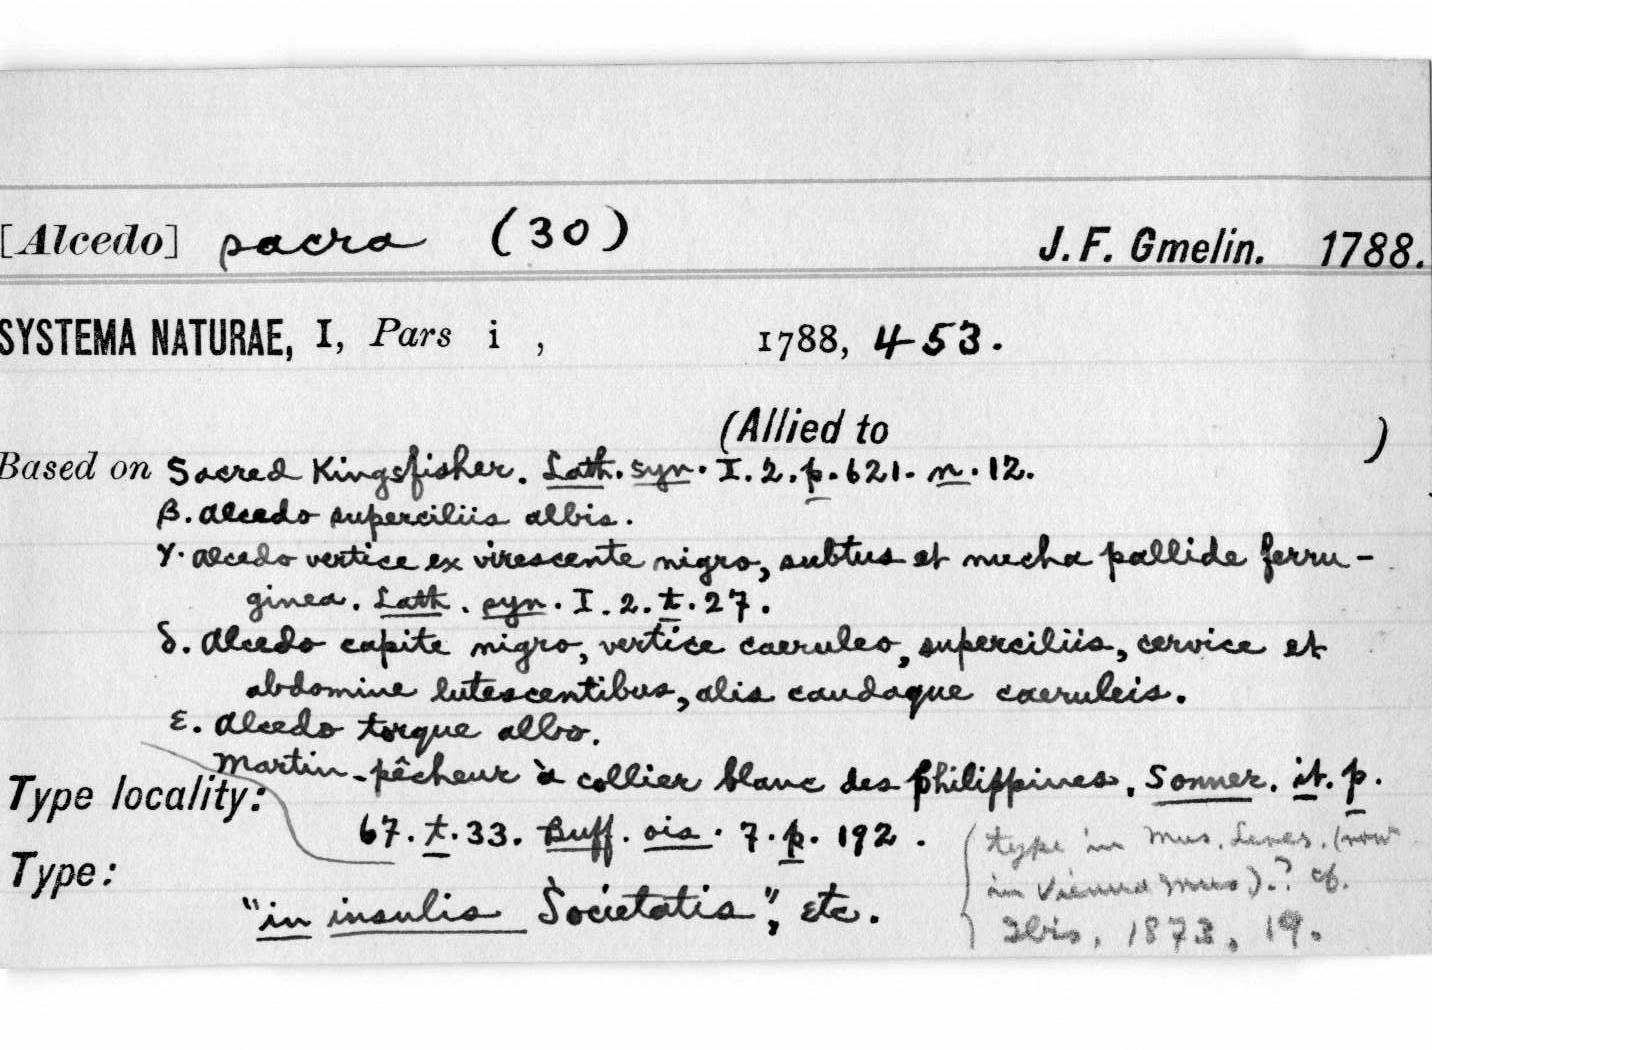 [Alcedo] sacra (30) J. F. Gmelin. 1788.
SYSTEMA NATURAE, I, Pars i , 1788, 453.
(Allied to )
Based on Sacred Kingsfisher. Lath. syn. I. 2. p. 621. n. 12.
β. Alcedo superciliis albis.
γ. Alcedo vertice ex virescente nigro, subtus et nucha pallide ferru-
ginea. Lath. syn. I. 2. t. 27.
δ. Alcedo capite nigro, vertice caeruleo, superciliis, cervice et
abdomine lutescentibus, alis caudaque caeruleis.
ε. Alcedo torque albo.
Martin-pêcheur à collier blanc des Philippines. Sonner. it. p.
Type locality:
67. t. 33. Buff. ois. 7. p. 192.
Type:
"in insulis Societatis", etc.
(type in Mus. Lever. (now
in Vienna Mus).? cf.
Ibis, 1873, 19.